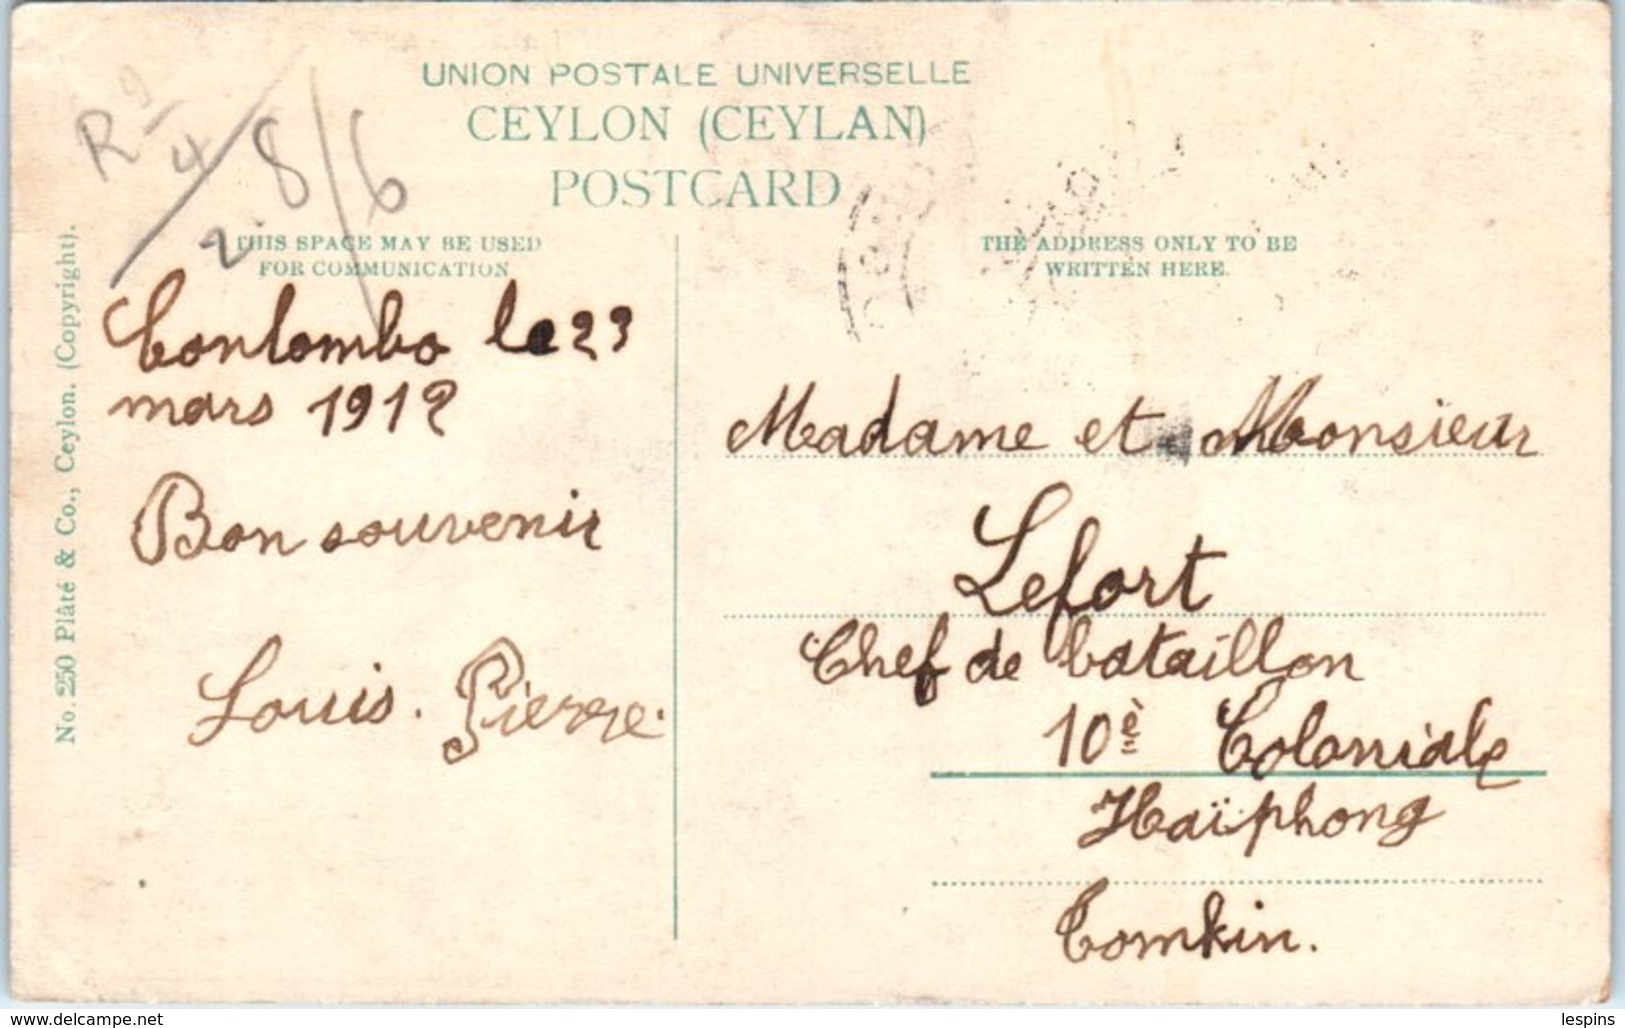 UNION POSTALE UNIVERSELLE
CEYLON (CEYLAN)
POSTCARD
R 9/4
2.8/6
THIS SPACE MAY BE USED
FOR COMMUNICATION
THE ADDRESS ONLY TO BE
WRITTEN HERE.
No. 250 Plâté & Co., Ceylon. (Copyright).
Conlombo le 23
mars 1912
Bon souvenir
Louis. Pierre.
Madame et Monsieur
Lefort
Chef de bataillon
10è Coloniale
Haïphong
Tomkin.
delcampe.net
lespins